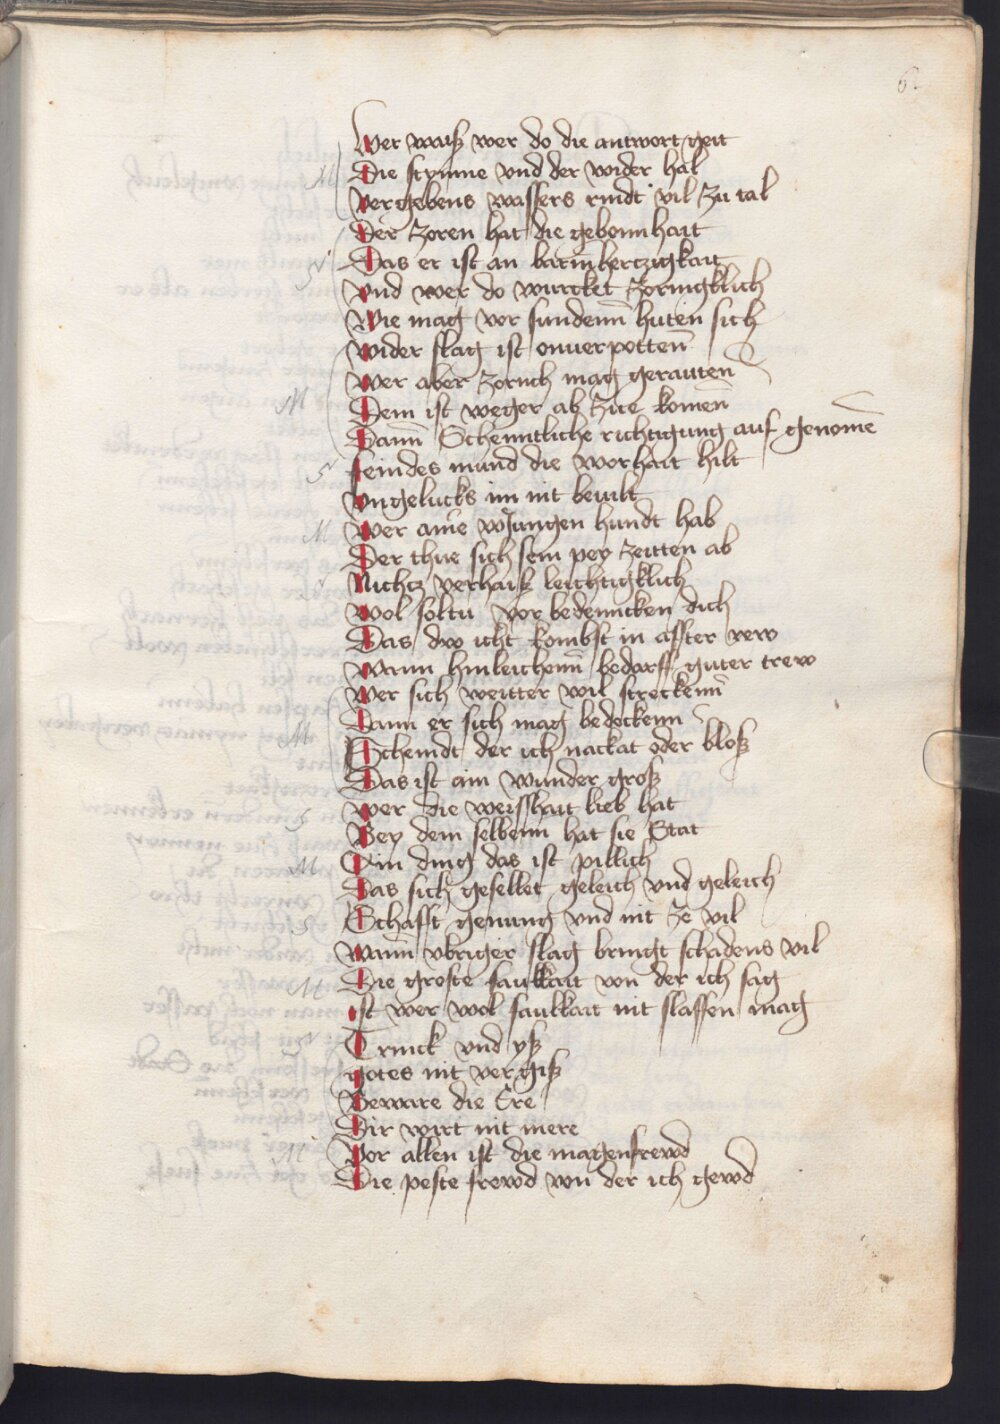 6
Wer waiß wer do die antwort geit
M Die stymme vnd der wider hal
Vergebens wassers rindt vil zu tal
Der zoren hat die gebonnhait
Das er ist an barmhertzigkait
Vnd wer do wurcket zoringklich
Wie mag vor sundenn̄ huten sich
Wider slag ist onuerpotten̄
Wer aber zoruch mag geratten̄
M Dem ist weger ab zue komen̄
Dann̄ Schenntliche richtigung auf genomen̄
S feindes mund die worhait hilt
Vngelucks im nit beuilt
M Wer ain̄e wJungen hundt hab
Der thue sich sein pey zeitten ab
S Nichtz verhaiß leichtigklich
Wol soltu vor bedenncken dich
Das dw icht kombst in affter rew
Wann hinleichenn̄ bedorff guter trew
Wer sich weitter wil streckenn̄
Dann er sich mag bedeckenn
M Scheindt der ich nackat oder bloß
Das ist ain wunder groß
S Wer die weisshait lieb hat
Bey dem selbenn hat sie Stat
M Ein ding das ist pillich
Das sich gesellet geleich vnd geleich
S Schafft genung vnd nit ze vil
Wann̄ vbriger slag bringt schadens vil
M Die groste faulkait von der ich sag
ist wer vol faulkait nit slaffen mag
S Trinck vnd yß
gotes nit vergiß
Beware die Ere
Dir wirt nit mere
M Vor allen ist die magenfrewd
Die peste frewd von der ich gewd